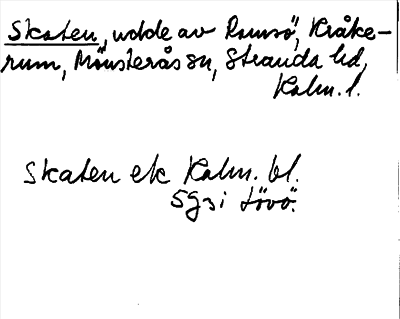 Skaten, udde av Runsö, Kråke-
rum, Mönsterås sn, Stranda hd,
Kalm. l.
Skaten ek Kalm. bl.
5g3i tövö.